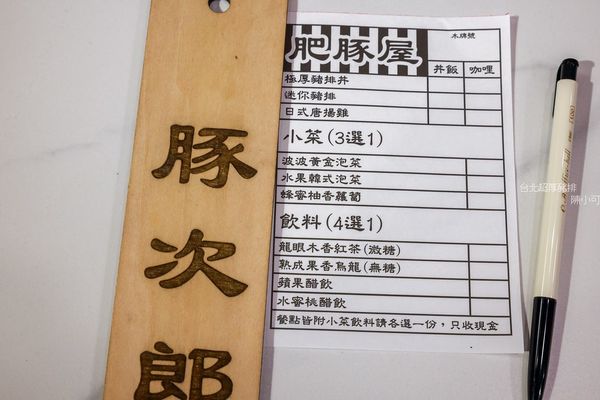 豚次郎
肥豚屋
木牌號
丼飯
咖哩
極厚豬排丼
迷你豬排
日式唐揚雞
小菜(3選1)
波波黃金泡菜
水果韓式泡菜
蜂蜜柚香蘿蔔
飲料(4選1)
龍眼木香紅茶(微糖)
熟成果香烏龍(無糖)
蘋果醋飲
水蜜桃醋飲
餐點皆附小菜飲料請各選一份,只收現金
台北超厚豬排
陳小可